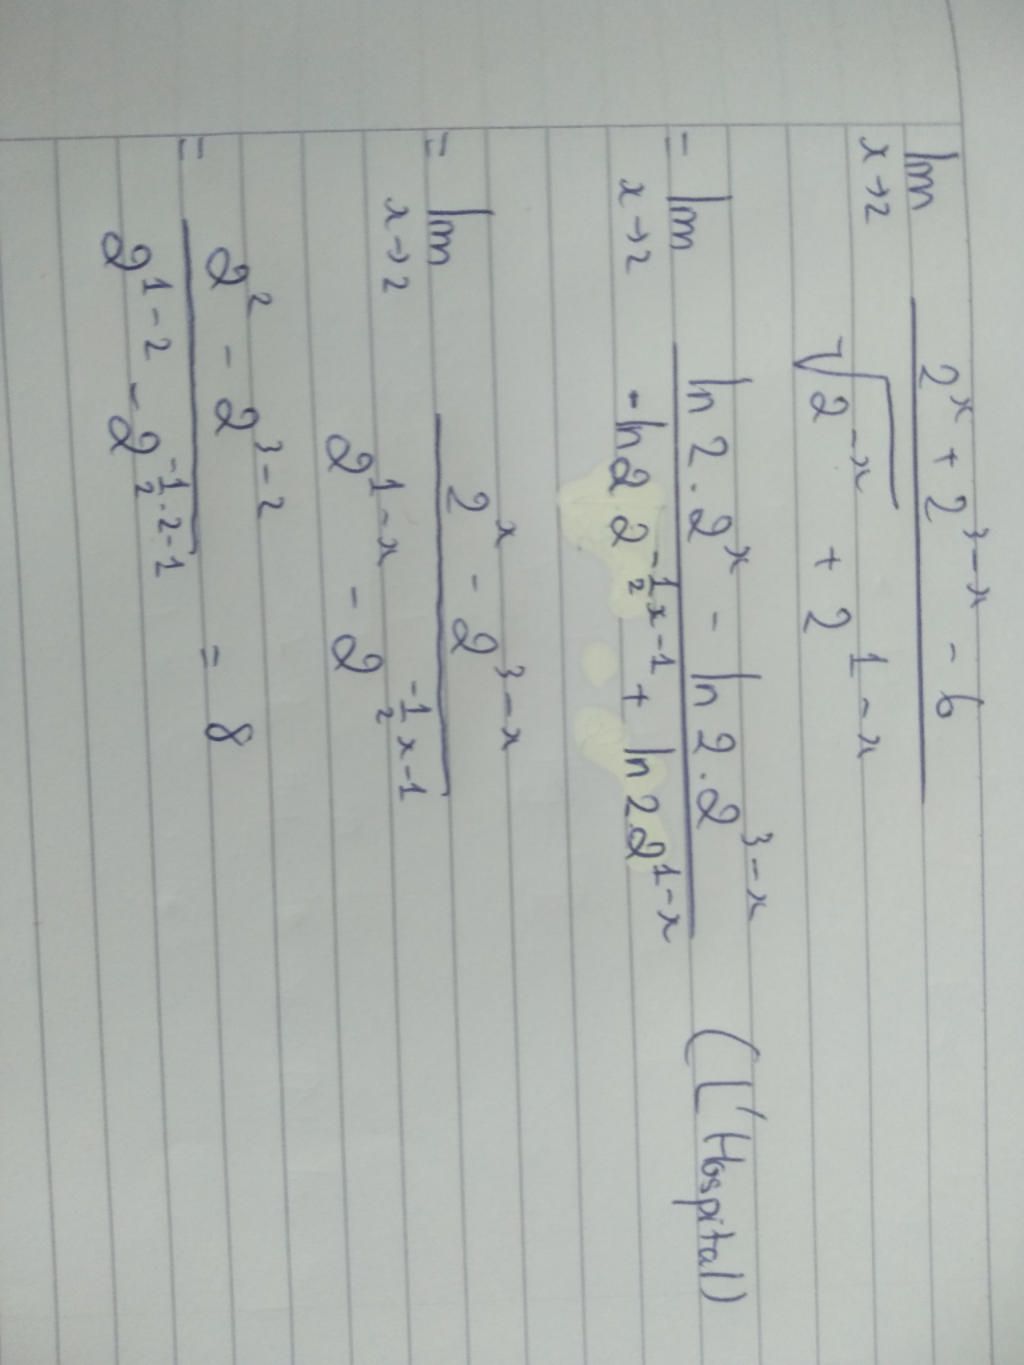 lim x→2 (2^x + 2^(3-x) - 6) / (√(2^(-x)) + 2^(1-x))
= lim x→2 (ln 2 . 2^x - ln 2 . 2^(3-x)) / (-ln 2 2^(-1/2 x - 1) + ln 2 . 2^(1-x)) (L'Hospital)
= lim x→2 (2^x - 2^(3-x)) / (2^(1-x) - 2^(-1/2 x - 1))
= (2^2 - 2^(3-2)) / (2^(1-2) - 2^(-1/2 . 2 - 1)) = 8